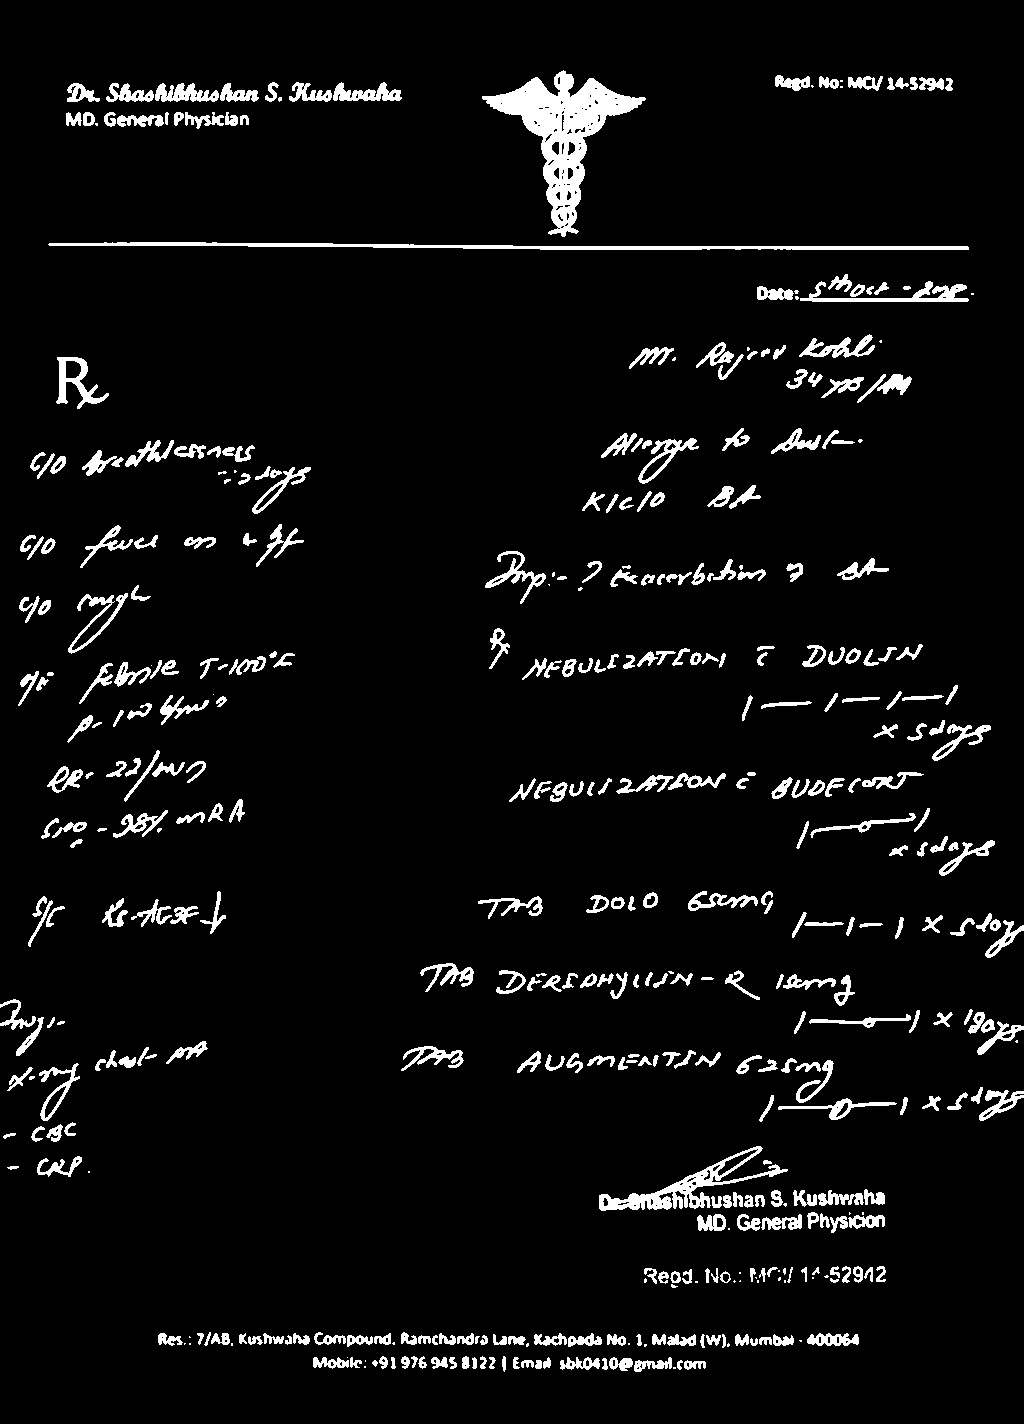 Dr. Shashibhushan S. Kushwaha
MD. General Physician
Regd. No: MCI/ 14-52942
Date: 5th Oct -
Mr. Rajeev Kohli
34 yrs/M
Rx
C/O breathlessness
days
C/O fever on & off
C/O cough
O/E febrile T-100°F
P-
RR- 22/min
SPO2 - 98% RA
S/E
Invg:-
X-ray chest PA
- CBC
- CRP.
Allergy to Dust
K/C/O BA
Imp:- ? Exacerbation of BA
Rx
NEBULIZATION c̄ DUOLIN
1 — 1 — 1 — 1
x 5 days
NEBULIZATION c̄ BUDECORT
1 — 0 — 1
x 5 days
TAB DOLO 650mg
1 — 1 — 1 x 5 days
TAB DERIPHYLLIN - R 150mg
1 — 0 — 1 x days.
TAB AUGMENTIN 625mg
1 — 0 — 1 x 5 days
Dr. Shashibhushan S. Kushwaha
MD. General Physicion
Regd. No.: MCI/ 14-52942
Res.: 7/AB, Kushwaha Compound, Ramchandra Lane, Kachpada No. 1, Malad (W), Mumbai - 400064
Mobile: +91 976 945 8122 | Email sbk0410@gmail.com